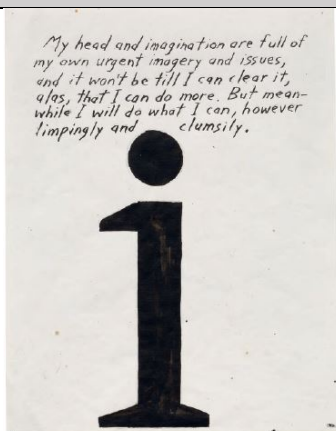 My head and imagination are full of
my own urgent imagery and issues,
and it won't be till I can clear it,
alas, that I can do more. But mean-
while I will do what I can, however
limpingly and clumsily.
i